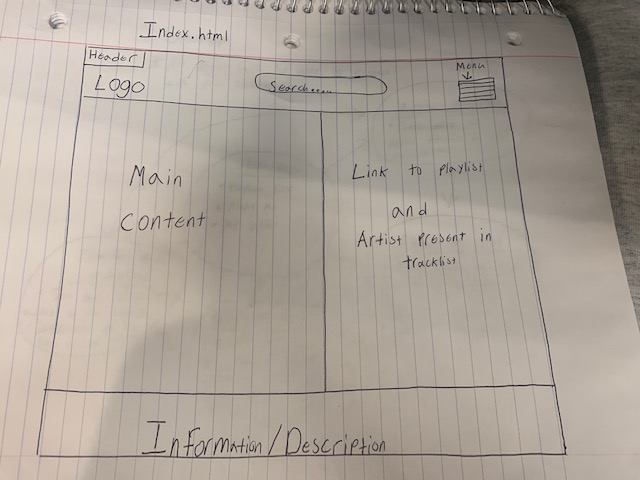 Index.html
Header
Menu
Logo
Search.....
Main
Content
Link to playlist
and
Artist present in
tracklist
Information/Description